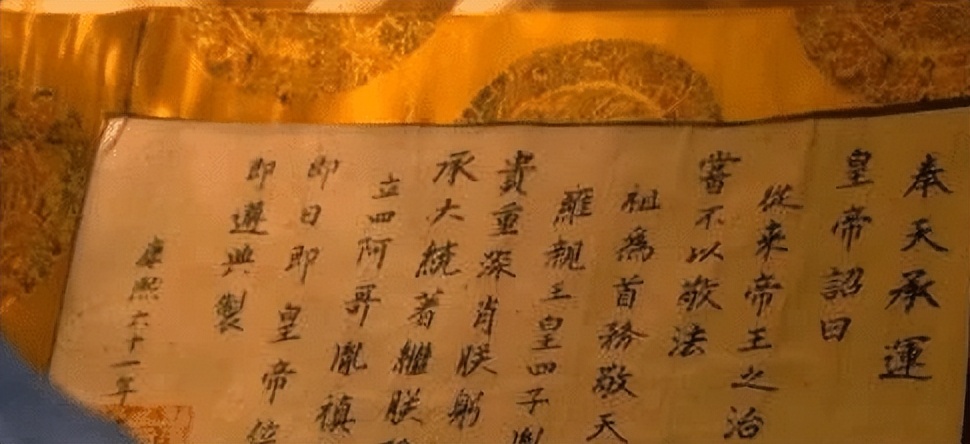 奉天承運
皇帝詔曰
從來帝王之治
嘗不以敬法
祖爲首務敬天
雍親王皇四子胤
貴重深肖朕躬
承大統著繼朕
立四阿哥胤禛
即日即皇帝位
即遵典製
康熙六十一年